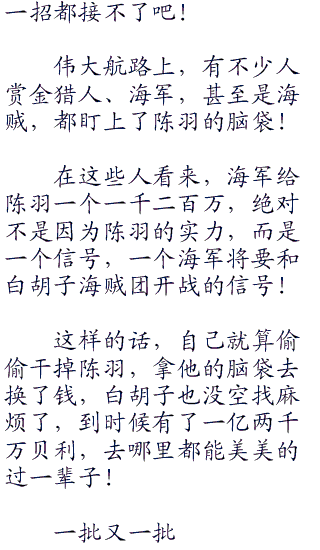 一招都接不了吧！
伟大航路上，有不少人
赏金猎人、海军，甚至是海
贼，都盯上了陈羽的脑袋！
在这些人看来，海军给
陈羽一个一千二百万，绝对
不是因为陈羽的实力，而是
一个信号，一个海军将要和
白胡子海贼团开战的信号！
这样的话，自己就算偷
偷干掉陈羽，拿他的脑袋去
换了钱，白胡子也没空找麻
烦了，到时候有了一亿两千
万贝利，去哪里都能美美的
过一辈子！
一批又一批